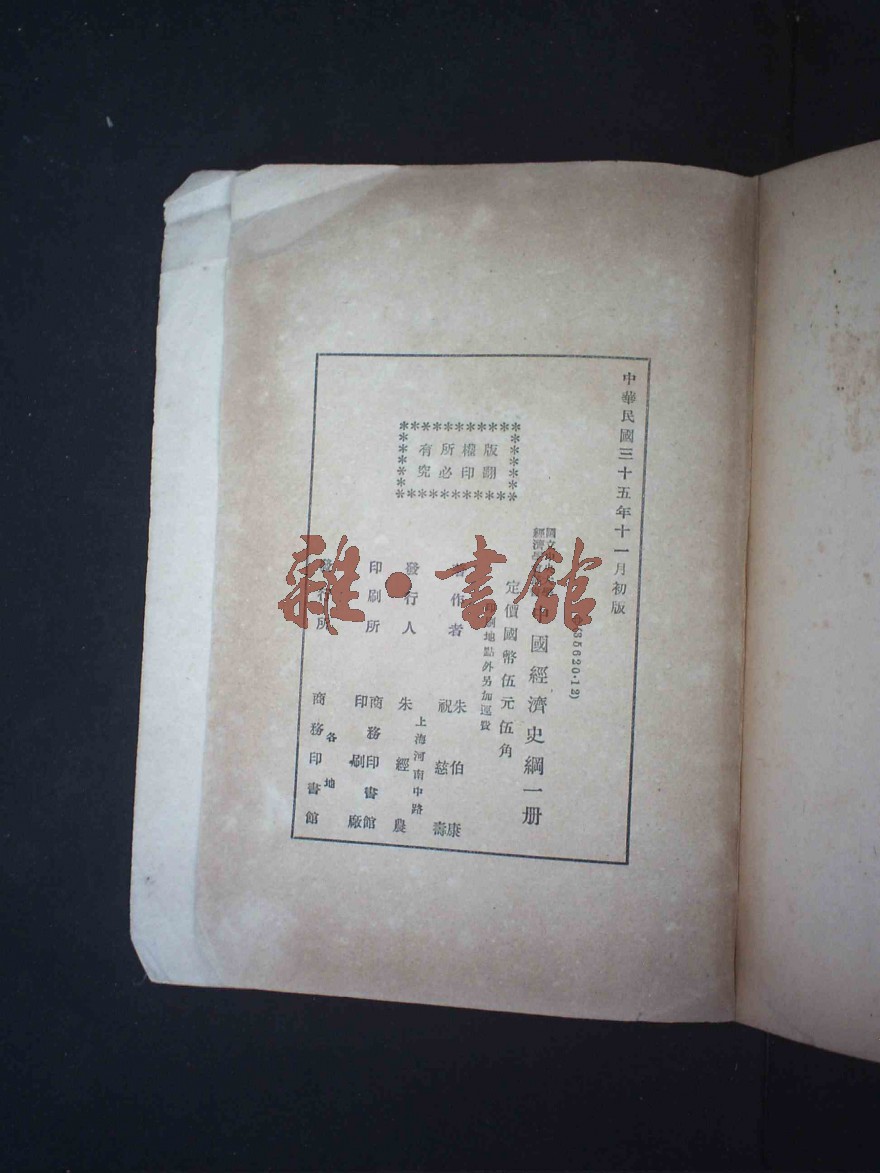 中華民國三十五年十一月初版
35620·12)
中國經濟史綱一册
定價國幣伍元伍角
印刷地點外另加運費
版權所有
翻印必究
著作者
朱伯康
祝慈壽
發行人
朱經農
上海河南中路
印刷所
商務印書館
印刷廠
發行所
商務印書館
各地
雜·書館